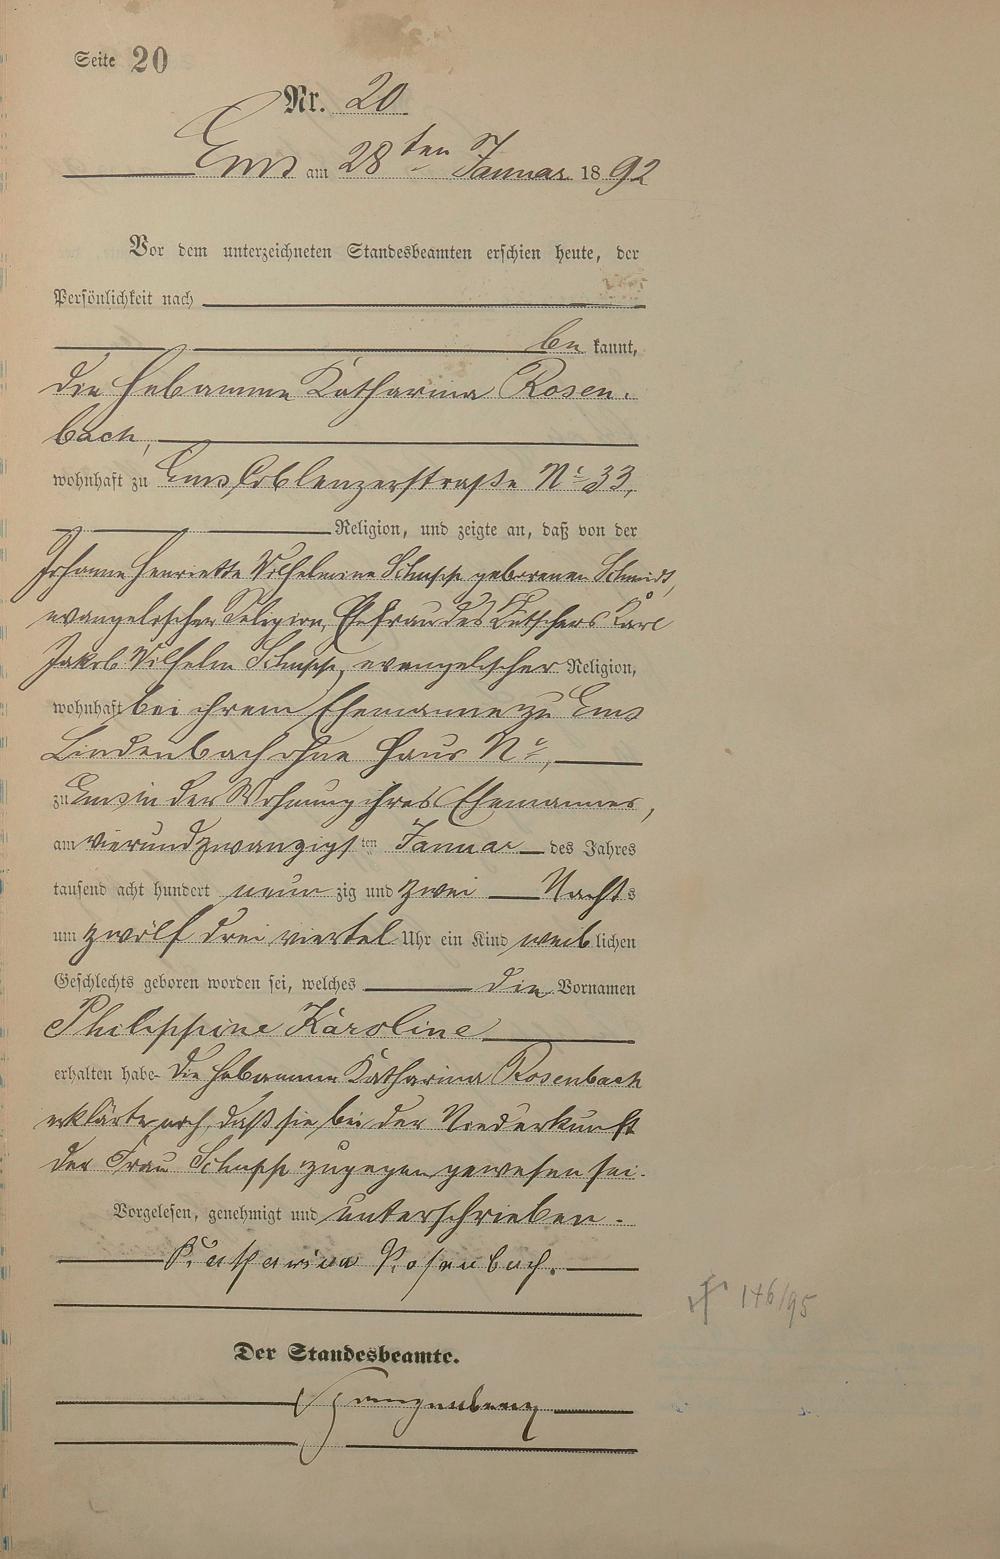 Seite 20
Nr. 20
Ems am 28ten Januar 1892
Vor dem unterzeichneten Standesbeamten erschien heute, der
Persönlichkeit nach
be kannt,
die Hebamme Katharina Rosen-
bach,
wohnhaft zu Ems, Coblenzerstraße No 33,
Religion, und zeigte an, daß von der
Johanne Henriette Wilhelmine Schupp geborenen Schmidt,
evangelischer Religion, Ehefrau des Kutschers Karl
Jakob Wilhelm Schupp, evangelischer Religion,
wohnhaft bei ihrem Ehemanne zu Ems
Lindenbach ohne Haus No,
zu Ems in der Wohnung ihres Ehemannes,
am vierundzwanzigsten Januar des Jahres
tausend acht hundert neun zig und zwei Nachts
um zwölf drei viertel Uhr ein Kind weiblichen
Geschlechts geboren worden sei, welches die Vornamen
Philippine Karoline
erhalten habe. Die Hebamme Katharina Rosenbach
erklärte noch, daß sie bei der Niederkunft
der Frau Schupp zugegen gewesen sei.
Vorgelesen, genehmigt und unterschrieben.
Katharina Rosenbach.
146/95
Der Standesbeamte.